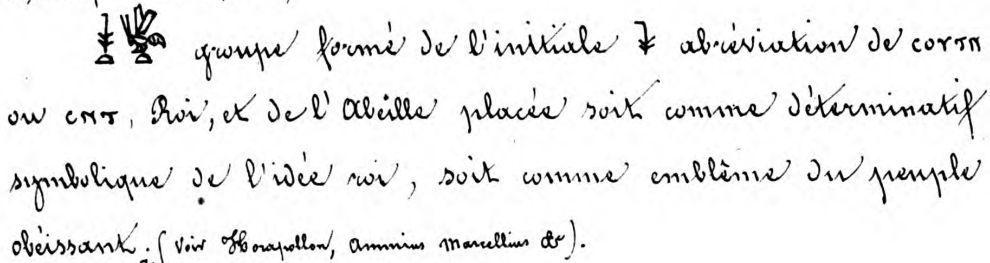 𓇓𓏏𓆤𓏏 groupe formé de l'initiale 𓇓 abréviation de ⲥⲟⲩⲧⲛ
ou ⲥⲛⲧ, Roi, et de l'Abeille placée soit comme déterminatif
symbolique de l'idée roi, soit comme emblême du peuple
obéissant. (Voir Horapollon, Ammius Marcellius &c).